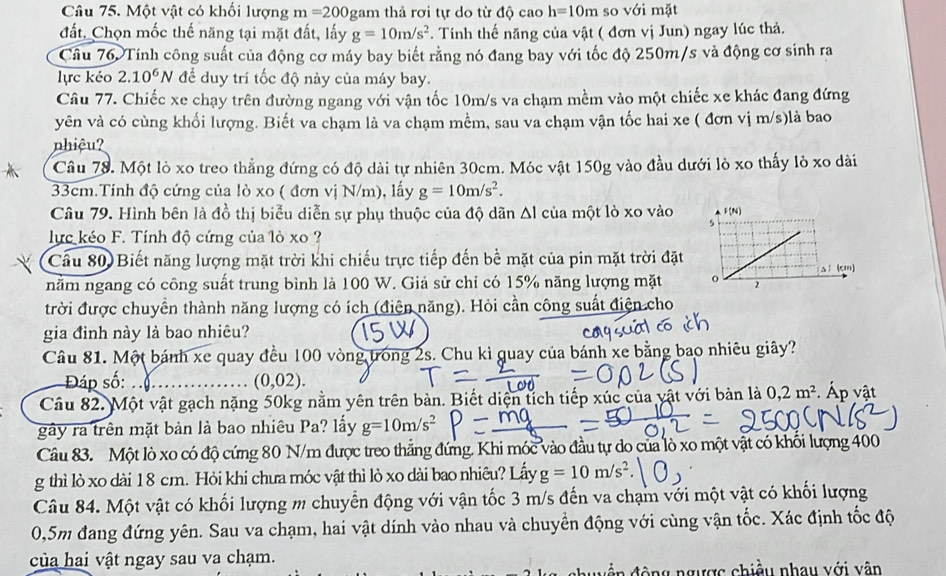 Câu 75. Một vật có khối lượng m =200gam thả rơi tự do từ độ cao h=10m so với mặt
đất. Chọn mốc thế năng tại mặt đất, lấy g = 10m/s². Tính thế năng của vật ( đơn vị Jun) ngay lúc thả.
Câu 76. Tính công suất của động cơ máy bay biết rằng nó đang bay với tốc độ 250m/s và động cơ sinh ra
lực kéo 2.10⁶N để duy trí tốc độ này của máy bay.
Câu 77. Chiếc xe chạy trên đường ngang với vận tốc 10m/s va chạm mềm vào một chiếc xe khác đang đứng
yên và có cùng khối lượng. Biết va chạm là va chạm mềm, sau va chạm vận tốc hai xe ( đơn vị m/s)là bao
nhiêu?
Câu 78. Một lò xo treo thẳng đứng có độ dài tự nhiên 30cm. Móc vật 150g vào đầu dưới lò xo thấy lò xo dài
33cm.Tính độ cứng của lò xo ( đơn vị N/m), lấy g = 10m/s².
Câu 79. Hình bên là đồ thị biểu diễn sự phụ thuộc của độ dãn Δl của một lò xo vào
lực kéo F. Tính độ cứng của lò xo ?
F(N)
5
0
2
Δl (cm)
Câu 80. Biết năng lượng mặt trời khi chiếu trực tiếp đến bề mặt của pin mặt trời đặt
nằm ngang có công suất trung bình là 100 W. Giả sử chỉ có 15% năng lượng mặt
trời được chuyển thành năng lượng có ích (điện năng). Hỏi cần công suất điện cho
gia đình này là bao nhiêu?
15W
công suất có ích
Câu 81. Một bánh xe quay đều 100 vòng trong 2s. Chu kì quay của bánh xe bằng bao nhiêu giây?
Đáp số: ................... (0,02).
T = 2/100 = 0,02(s)
Câu 82. Một vật gạch nặng 50kg nằm yên trên bàn. Biết diện tích tiếp xúc của vật với bàn là 0,2 m². Áp vật
gây ra trên mặt bàn là bao nhiêu Pa? lấy g=10m/s²
P = mg/s = 50.10/0,2 = 2500(N/s²)
Câu 83. Một lò xo có độ cứng 80 N/m được treo thẳng đứng. Khi móc vào đầu tự do của lò xo một vật có khối lượng 400
g thì lò xo dài 18 cm. Hỏi khi chưa móc vật thì lò xo dài bao nhiêu? Lấy g = 10 m/s².
Câu 84. Một vật có khối lượng m chuyển động với vận tốc 3 m/s đến va chạm với một vật có khối lượng
0,5m đang đứng yên. Sau va chạm, hai vật dính vào nhau và chuyển động với cùng vận tốc. Xác định tốc độ
của hai vật ngay sau va chạm.
chuyển động ngược chiều nhau với vận